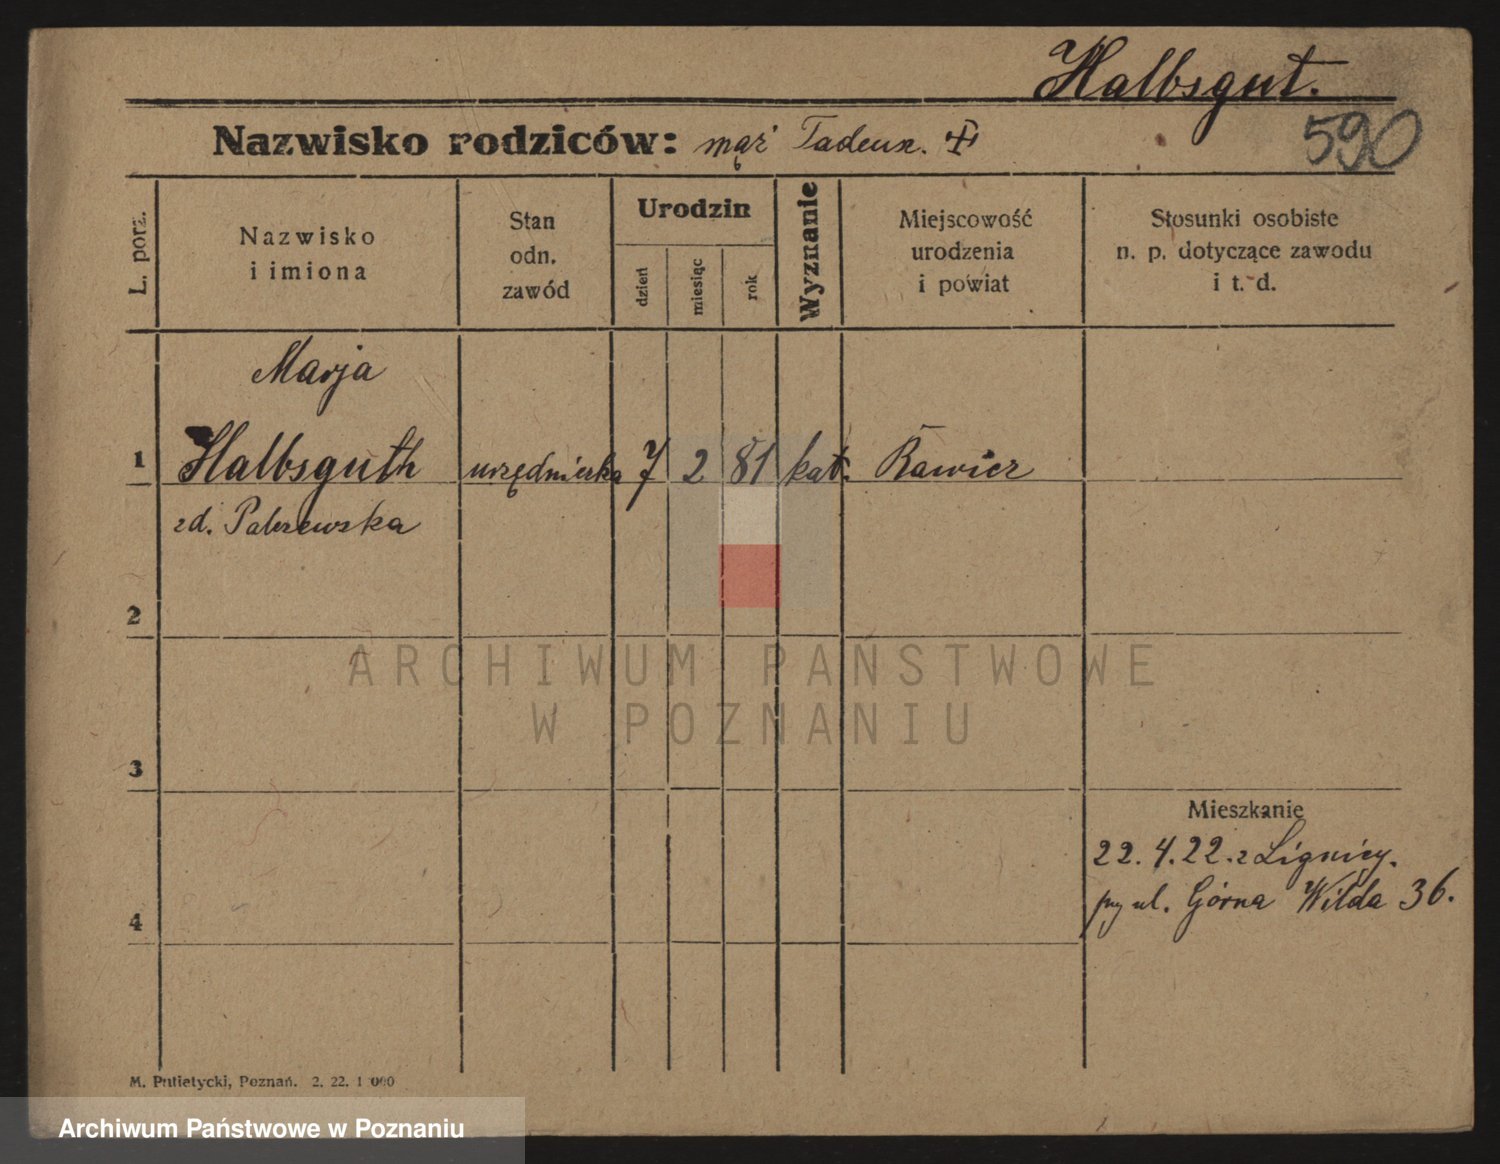 Halbsgut.
590
Nazwisko rodziców: mąż Tadeusz.
L. porz.
Nazwisko
i imiona
Stan
odn.
zawód
Urodzin
dzień
miesiąc
rok
Wyznanie
Miejscowość
urodzenia
i powiat
Stosunki osobiste
n. p. dotyczące zawodu
i t. d.
Marja
1 Halbsguth urzędniczka 7 2 81 kat. Rawicz
zd.
2
3
4
Mieszkanie
22. 4. 22. z Lignicy.
przy ul. Górna Wilda 36.
M. Putiatycki, Poznań. 2. 22. 1 000
ARCHIWUM PAŃSTWOWE
W POZNANIU
Archiwum Państwowe w Poznaniu